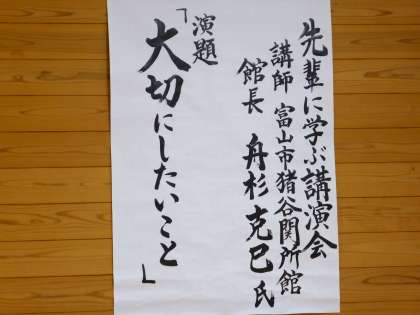 先輩に学ぶ講演会
講師 富山市猪谷関所館
館長 舟杉克巳氏
演題
「大切にしたいこと」